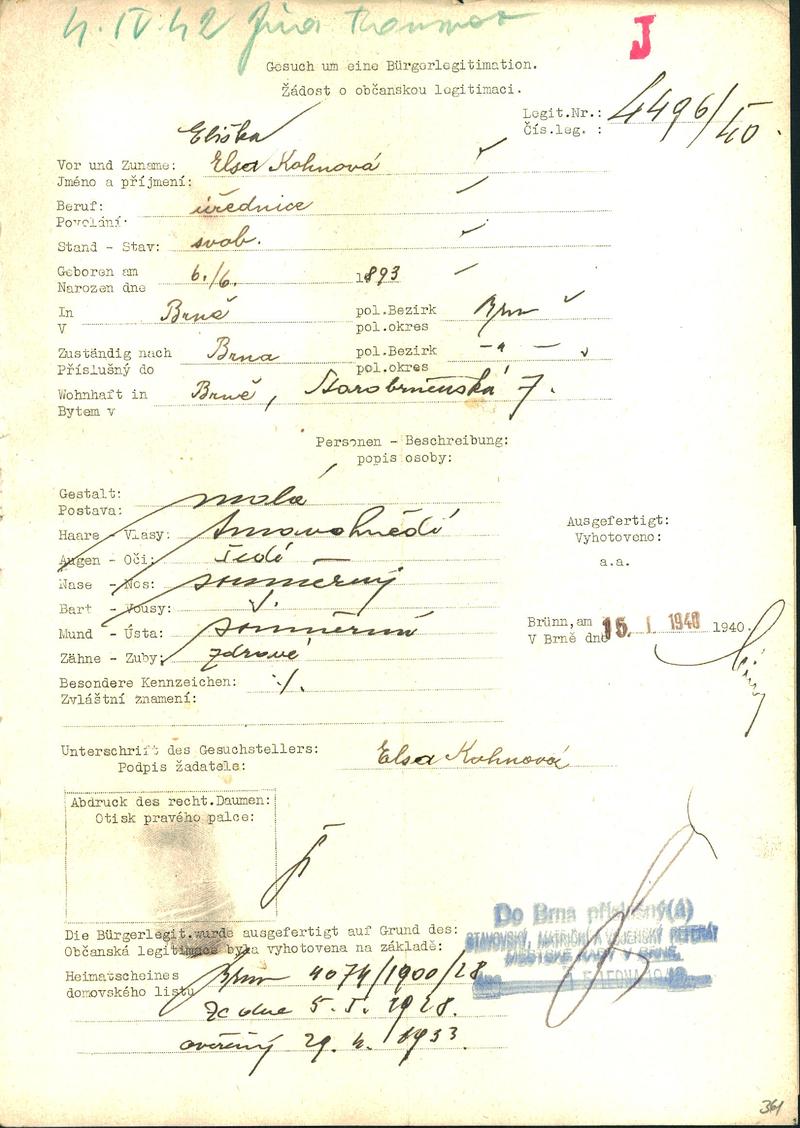 4. IV. 42
J
Gesuch um eine Bürgerlegitimation.
Žádost o občanskou legitimaci.
Legit.Nr.: 4496/40.
Čís.leg. :
Eliška
Vor und Zuname: Elsa Kohnová
Jméno a příjmení:
Beruf: úřednice
Povolání:
Stand - Stav: svob.
Geboren am 6./6. 1893
Narozen dne
In Brně pol.Bezirk Brno
V pol.okres
Zuständig nach Brna pol.Bezirk - " -
Příslušný do pol.okres
Wohnhaft in Brně, Starobrněnská 7.
Bytem v
Personen - Beschreibung:
popis osoby:
Gestalt: malá
Postava:
Haare - Vlasy: tmavohnědé
Augen - Oči: šedé
Nase - Nos: souměrný
Bart - Vousy:
Mund - Ústa: souměrná
Zähne - Zuby: zdravé
Besondere Kennzeichen: ./.
Zvláštní znamení:
Ausgefertigt:
Vyhotoveno:
a.a.
Brünn, am 15. I. 1940 1940.
V Brně dne
Unterschrift des Gesuchstellers: Elsa Kohnová
Podpis žadatele:
Abdruck des recht.Daumen:
Otisk pravého palce:
Do Brna příslušný(á)
STAVOVSKÝ, MATRIČNÍ A VOJENSKÝ REFERÁT
MĚSTSKÉ RADY V BRNĚ
Die Bürgerlegit.wurde ausgefertigt auf Grund des:
Občanská legitimace byla vyhotovena na základě:
Heimatscheines Brno 4074/1900/28
domovského listu
ze dne 5. I. 1928.
ověřený 29. 4. 1933
361